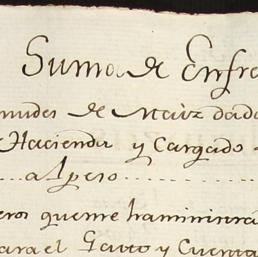 Suma de Enfre
mudes de Maiz dado
Hacienda y Cargado
al peso
eros que me haministra
para el Gasto y Cuenta